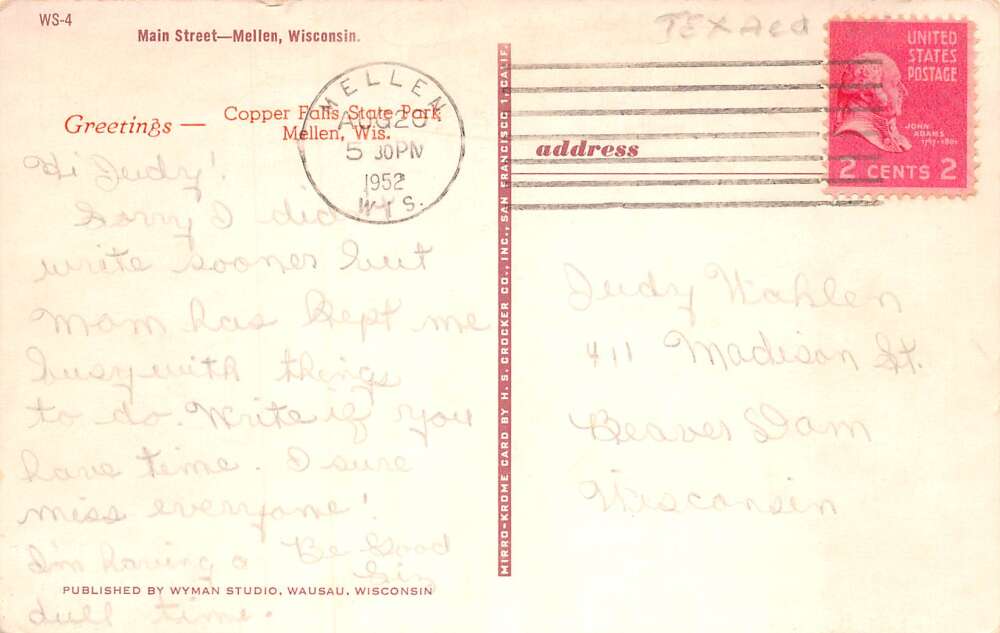 WS-4
Main Street—Mellen, Wisconsin.
Greetings —
Copper Falls State Park
Mellen, Wis.
Hi Judy!
Sorry I did
write sooner but
Mom has kept me
busy with things
to do. Write if you
have time. I sure
miss everyone!
I'm having a
dull time.
Be Good
PUBLISHED BY WYMAN STUDIO, WAUSAU, WISCONSIN
MELLEN
AUG 20
5 30PM
1952
WIS.
MIRRO-KROME CARD BY H. S. CROCKER CO., INC., SAN FRANCISCO 1, CALIF.
TEXACO
UNITED
STATES
POSTAGE
JOHN
ADAMS
1797-1801
2 CENTS 2
address
Judy Wahlen
411 Madison St.
Beaver Dam
Wisconsin